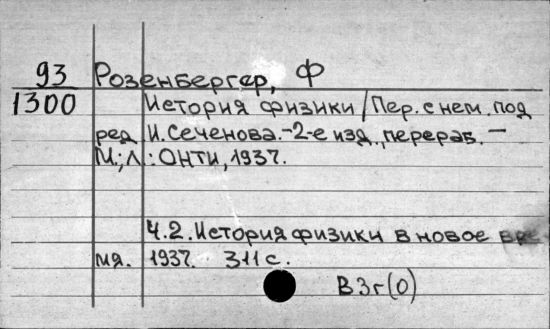 93 Розенбергер, Ф
1300 История физики / Пер. с нем. под
ред И. Сеченова. - 2-е изд., перераб. -
М.; Л.: ОНТИ, 1937.
Ч.2. История физики в новое вре
мя. 1937. 311 с.
В3г(0)